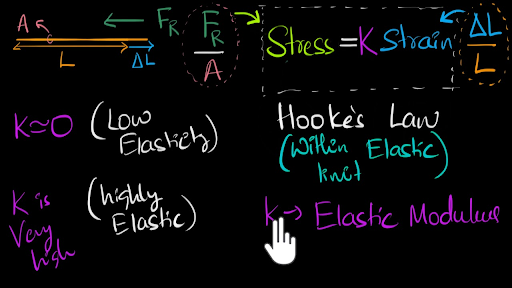 A
F_R
L
ΔL
F_R
A
Stress = K Strain
ΔL
L
K≈0
(Low
Elasticity)
Hooke's Law
(Within Elastic
limit)
K is
Very
high
(highly
Elastic)
K → Elastic Modulus